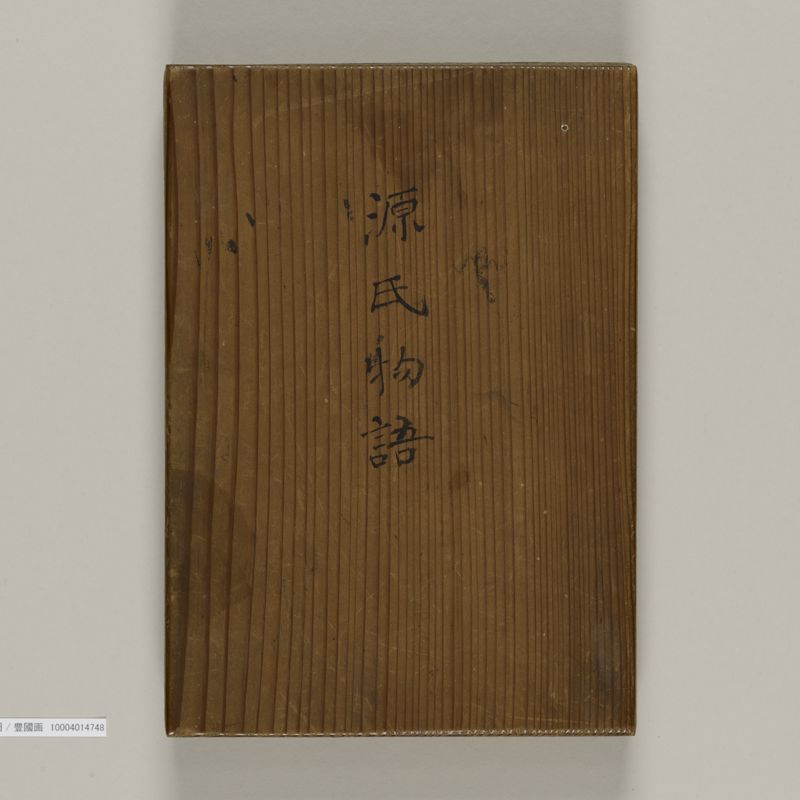 源氏物語
/ 豊國画 10004014748